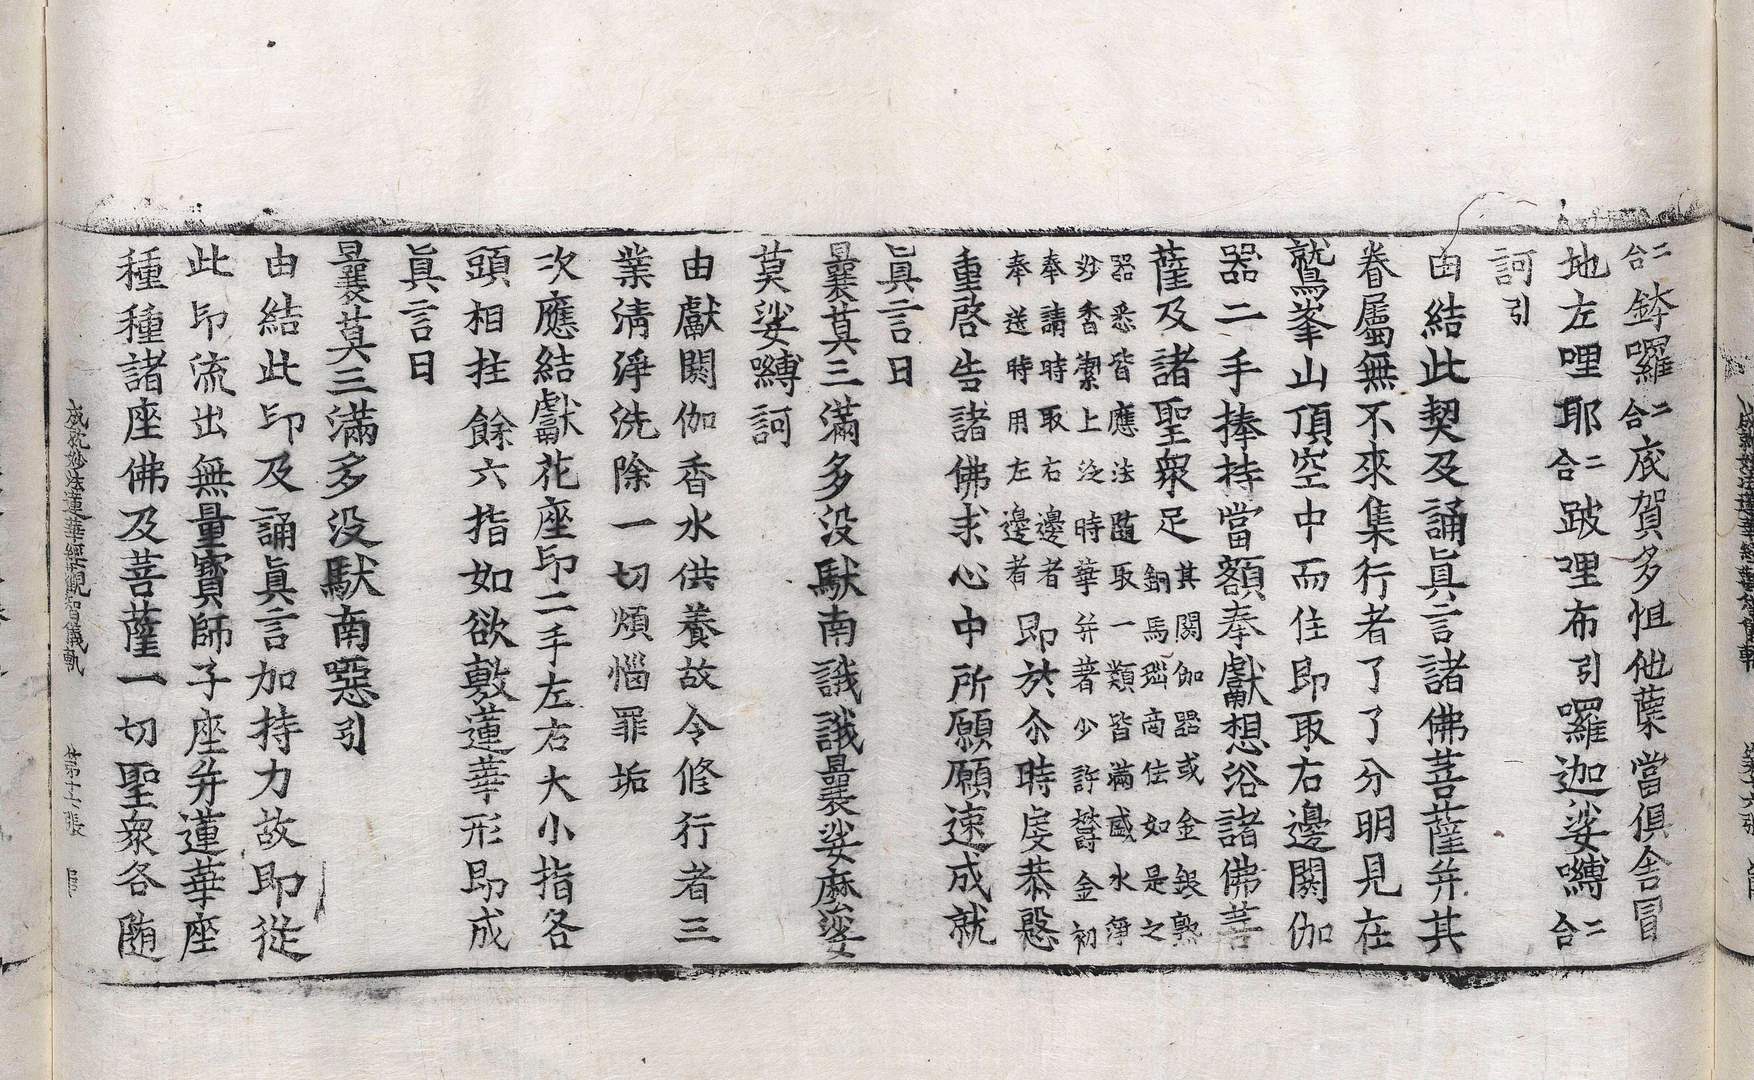 二合鉢囉二合底賀多怛他蘖當俱舍冒
地左哩耶二合跛哩布引囉迦娑嚩二合
訶引
由結此契及誦眞言諸佛菩薩并其
眷屬無不來集行者了了分明見在
鷲峯山頂空中而住即取右邊閼伽
器二手捧持當額奉獻想浴諸佛菩
薩及諸聖衆足其閼伽器或金銀熟
銅馬瑙商佉如是之
器悉皆應法随取一類皆滿盛水淨
妙香潔上泛時華并著少許欝金初
奉請時取右邊者
奉送時用左邊者即於尒時虔恭慇
重啓告諸佛求心中所願願速成就
眞言曰
曩莫三滿多没馱南誐誐曩娑麼娑
莫娑嚩訶
由獻閼伽香水供養故令修行者三
業淸淨洗除一切煩惱罪垢
次應結獻花座印二手左右大小指各
頭相拄餘六指如欲敷蓮華形即成
眞言曰
曩莫三滿多没馱南噁引
由結此印及誦眞言加持力故即從
此印流出無量寶師子座并蓮華座
種種諸座佛及菩薩一切聖衆各随
成就妙法蓮華經觀智儀軌 第十六張